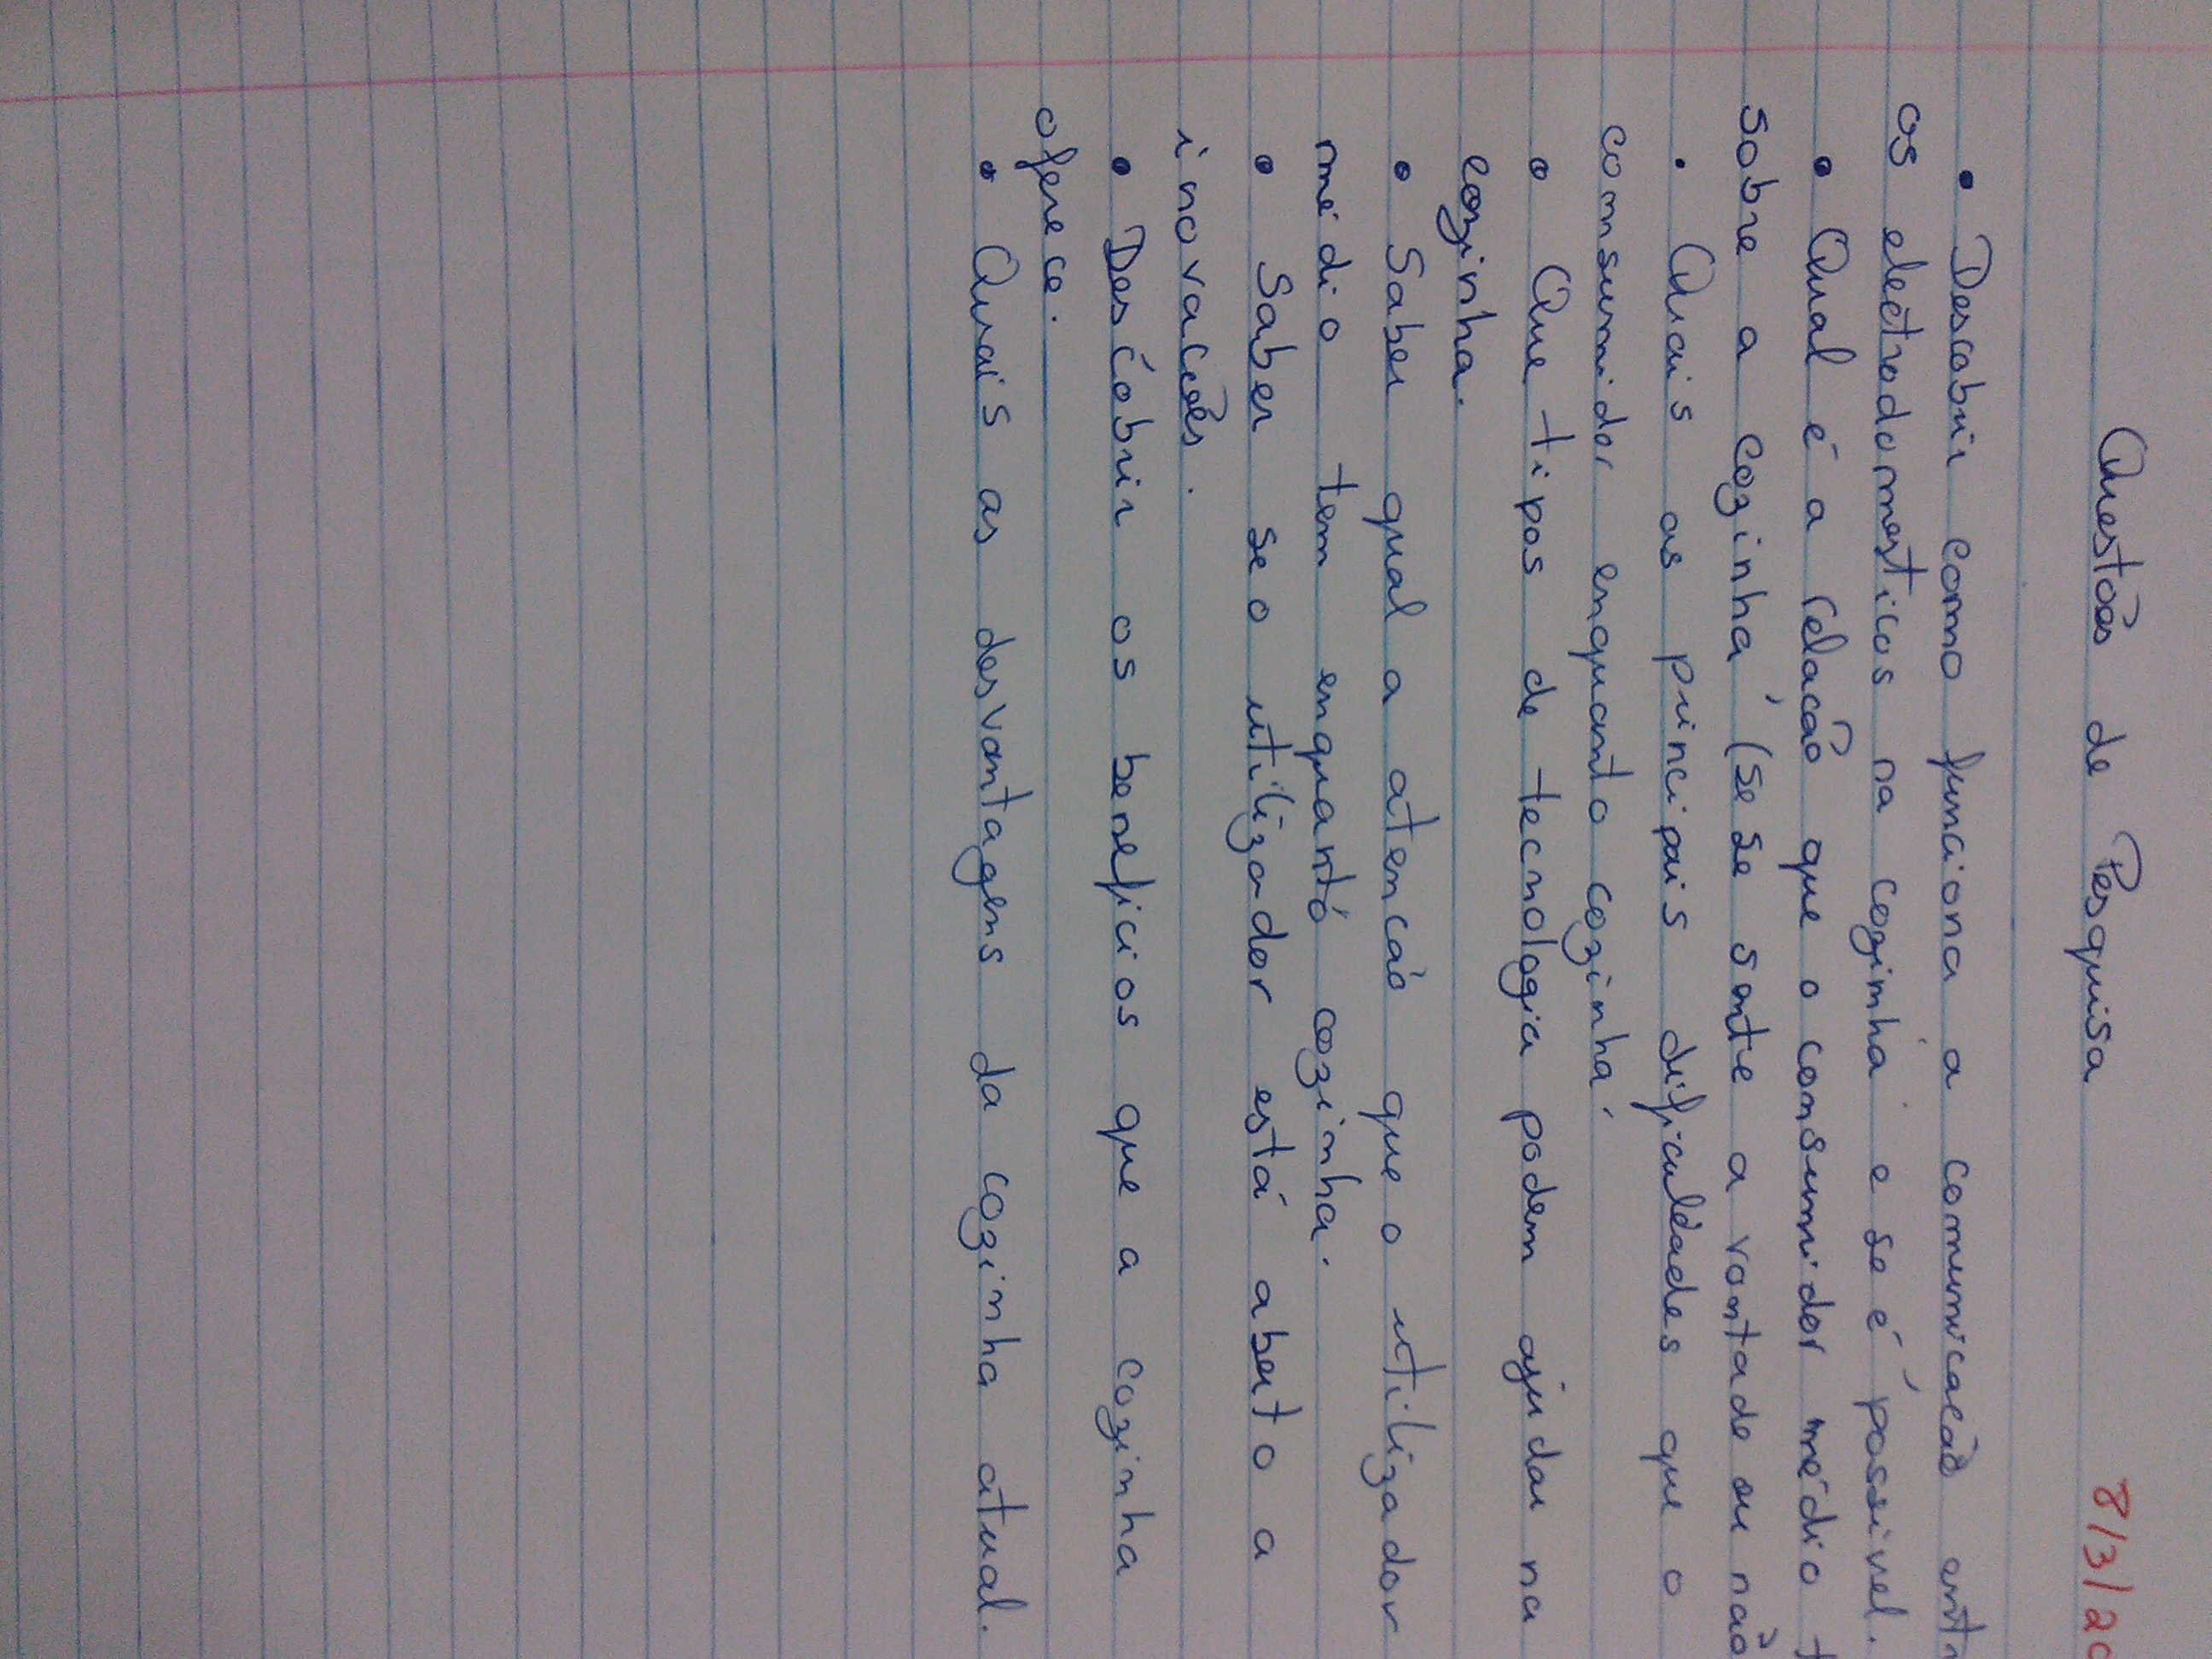 8/3/20
Questões de Pesquisa
• Descobrir como funciona a comunicação entr
os eletrodomesticos na cozinha e se é possivel.
• Qual é a relação que o consumidor médio t
sobre a cozinha (se se sente a vontade ou não
• Quais as principais dificuldades que o
consumidor enquanto cozinha
• Que tipos de tecnologia podem ajudar na
cozinha.
• Saber qual a atenção que o utilizador
médio tem enquanto cozinha.
• Saber se o utilizador está aberto a
inovações.
• Descobrir os beneficios que a cozinha
oferece.
• Quais as desvantagens da cozinha atual.